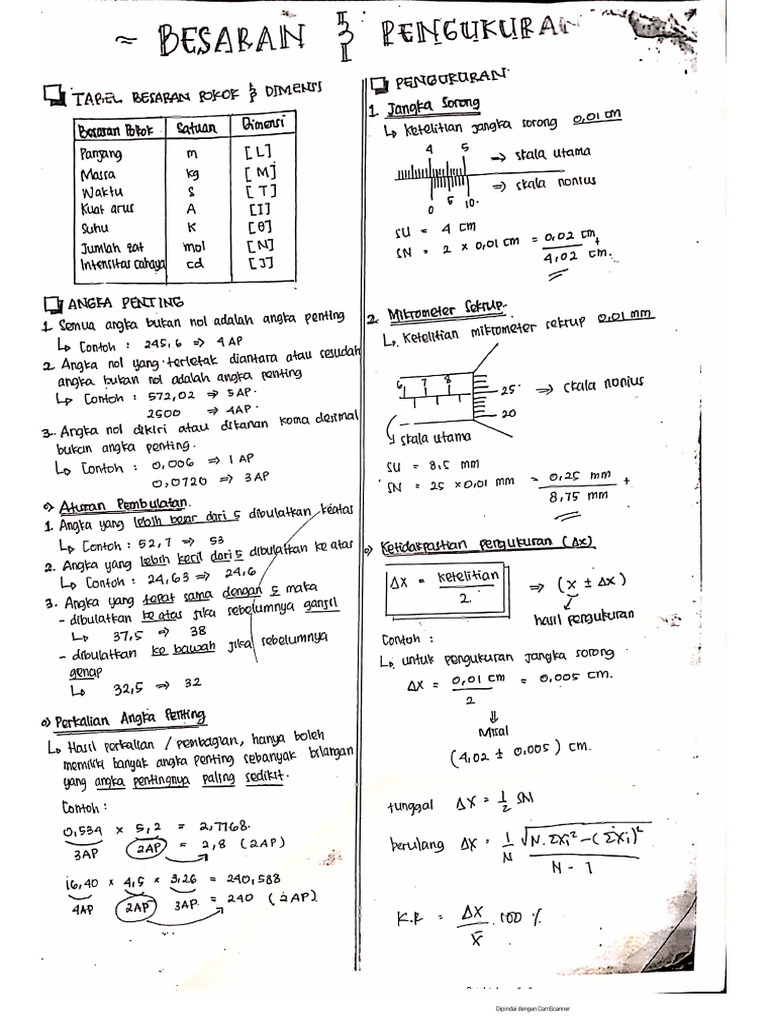 ~ BESARAN & PENGUKURAN
TABEL BESARAN POKOK & DIMENSI
Besaran Pokok Satuan Dimensi
Panjang m [L]
Massa kg [M]
Waktu s [T]
Kuat arus A [I]
Suhu K [θ]
Jumlah zat mol [N]
Intensitas cahaya cd [J]
ANGKA PENTING
1. Semua angka bukan nol adalah angka penting
↳ Contoh : 245,6 ⇒ 4 AP
2. Angka nol yang terletak diantara atau sesudah
angka bukan nol adalah angka penting
↳ Contoh : 572,02 ⇒ 5 AP.
2500 ⇒ 4 AP.
3. Angka nol dikiri atau dikanan koma desimal
bukan angka penting.
↳ Contoh : 0,006 ⇒ 1 AP
0,0720 ⇒ 3 AP
Aturan Pembulatan.
1. Angka yang lebih besar dari 5 dibulatkan keatas
↳ Contoh : 52,7 ⇒ 53
2. Angka yang lebih kecil dari 5 dibulatkan ke atas
↳ Contoh : 24,63 ⇒ 24,6
3. Angka yang tepat sama dengan 5 maka
- dibulatkan ke atas jika sebelumnya ganjil
↳ 37,5 ⇒ 38
- dibulatkan ke bawah jika sebelumnya
genap
↳ 32,5 ⇒ 32
Perkalian Angka Penting
↳ Hasil perkalian / pembagian, hanya boleh
memiliki banyak angka penting sebanyak bilangan
yang angka pentingnya paling sedikit.
Contoh :
0,534 × 5,2 = 2,7768.
3AP 2AP = 2,8 (2AP)
16,40 × 4,5 × 3,26 = 240,588
4AP 2AP 3AP = 240 (2AP)
PENGUKURAN
1. Jangka Sorong
↳ ketelitian jangka sorong 0,01 cm
4 5 → skala utama
⇒ skala nonius
0 5 10
SU = 4 cm
SN = 2 × 0,01 cm = 0,02 cm +
4,02 cm.
2. Mikrometer Sekrup.
↳ Ketelitian mikrometer sekrup 0,01 mm
6 7 8 25 ⇒ skala nonius
20
skala utama
SU = 8,5 mm
SN = 25 × 0,01 mm = 0,25 mm +
8,75 mm
Ketidakpastian pengukuran (Δx)
Δx = ketelitian / 2 ⇒ (x ± Δx)
hasil pengukuran
Contoh :
↳ untuk pengukuran jangka sorong
Δx = 0,01 cm / 2 = 0,005 cm.
⇓
Misal
(4,02 ± 0,005) cm.
tunggal Δx = 1/2 SN
berulang Δx = 1/N √(N.Σxi² − (Σxi)²) / N - 1
K.R = Δx / x̄ . 100 %
Dipindai dengan CamScanner